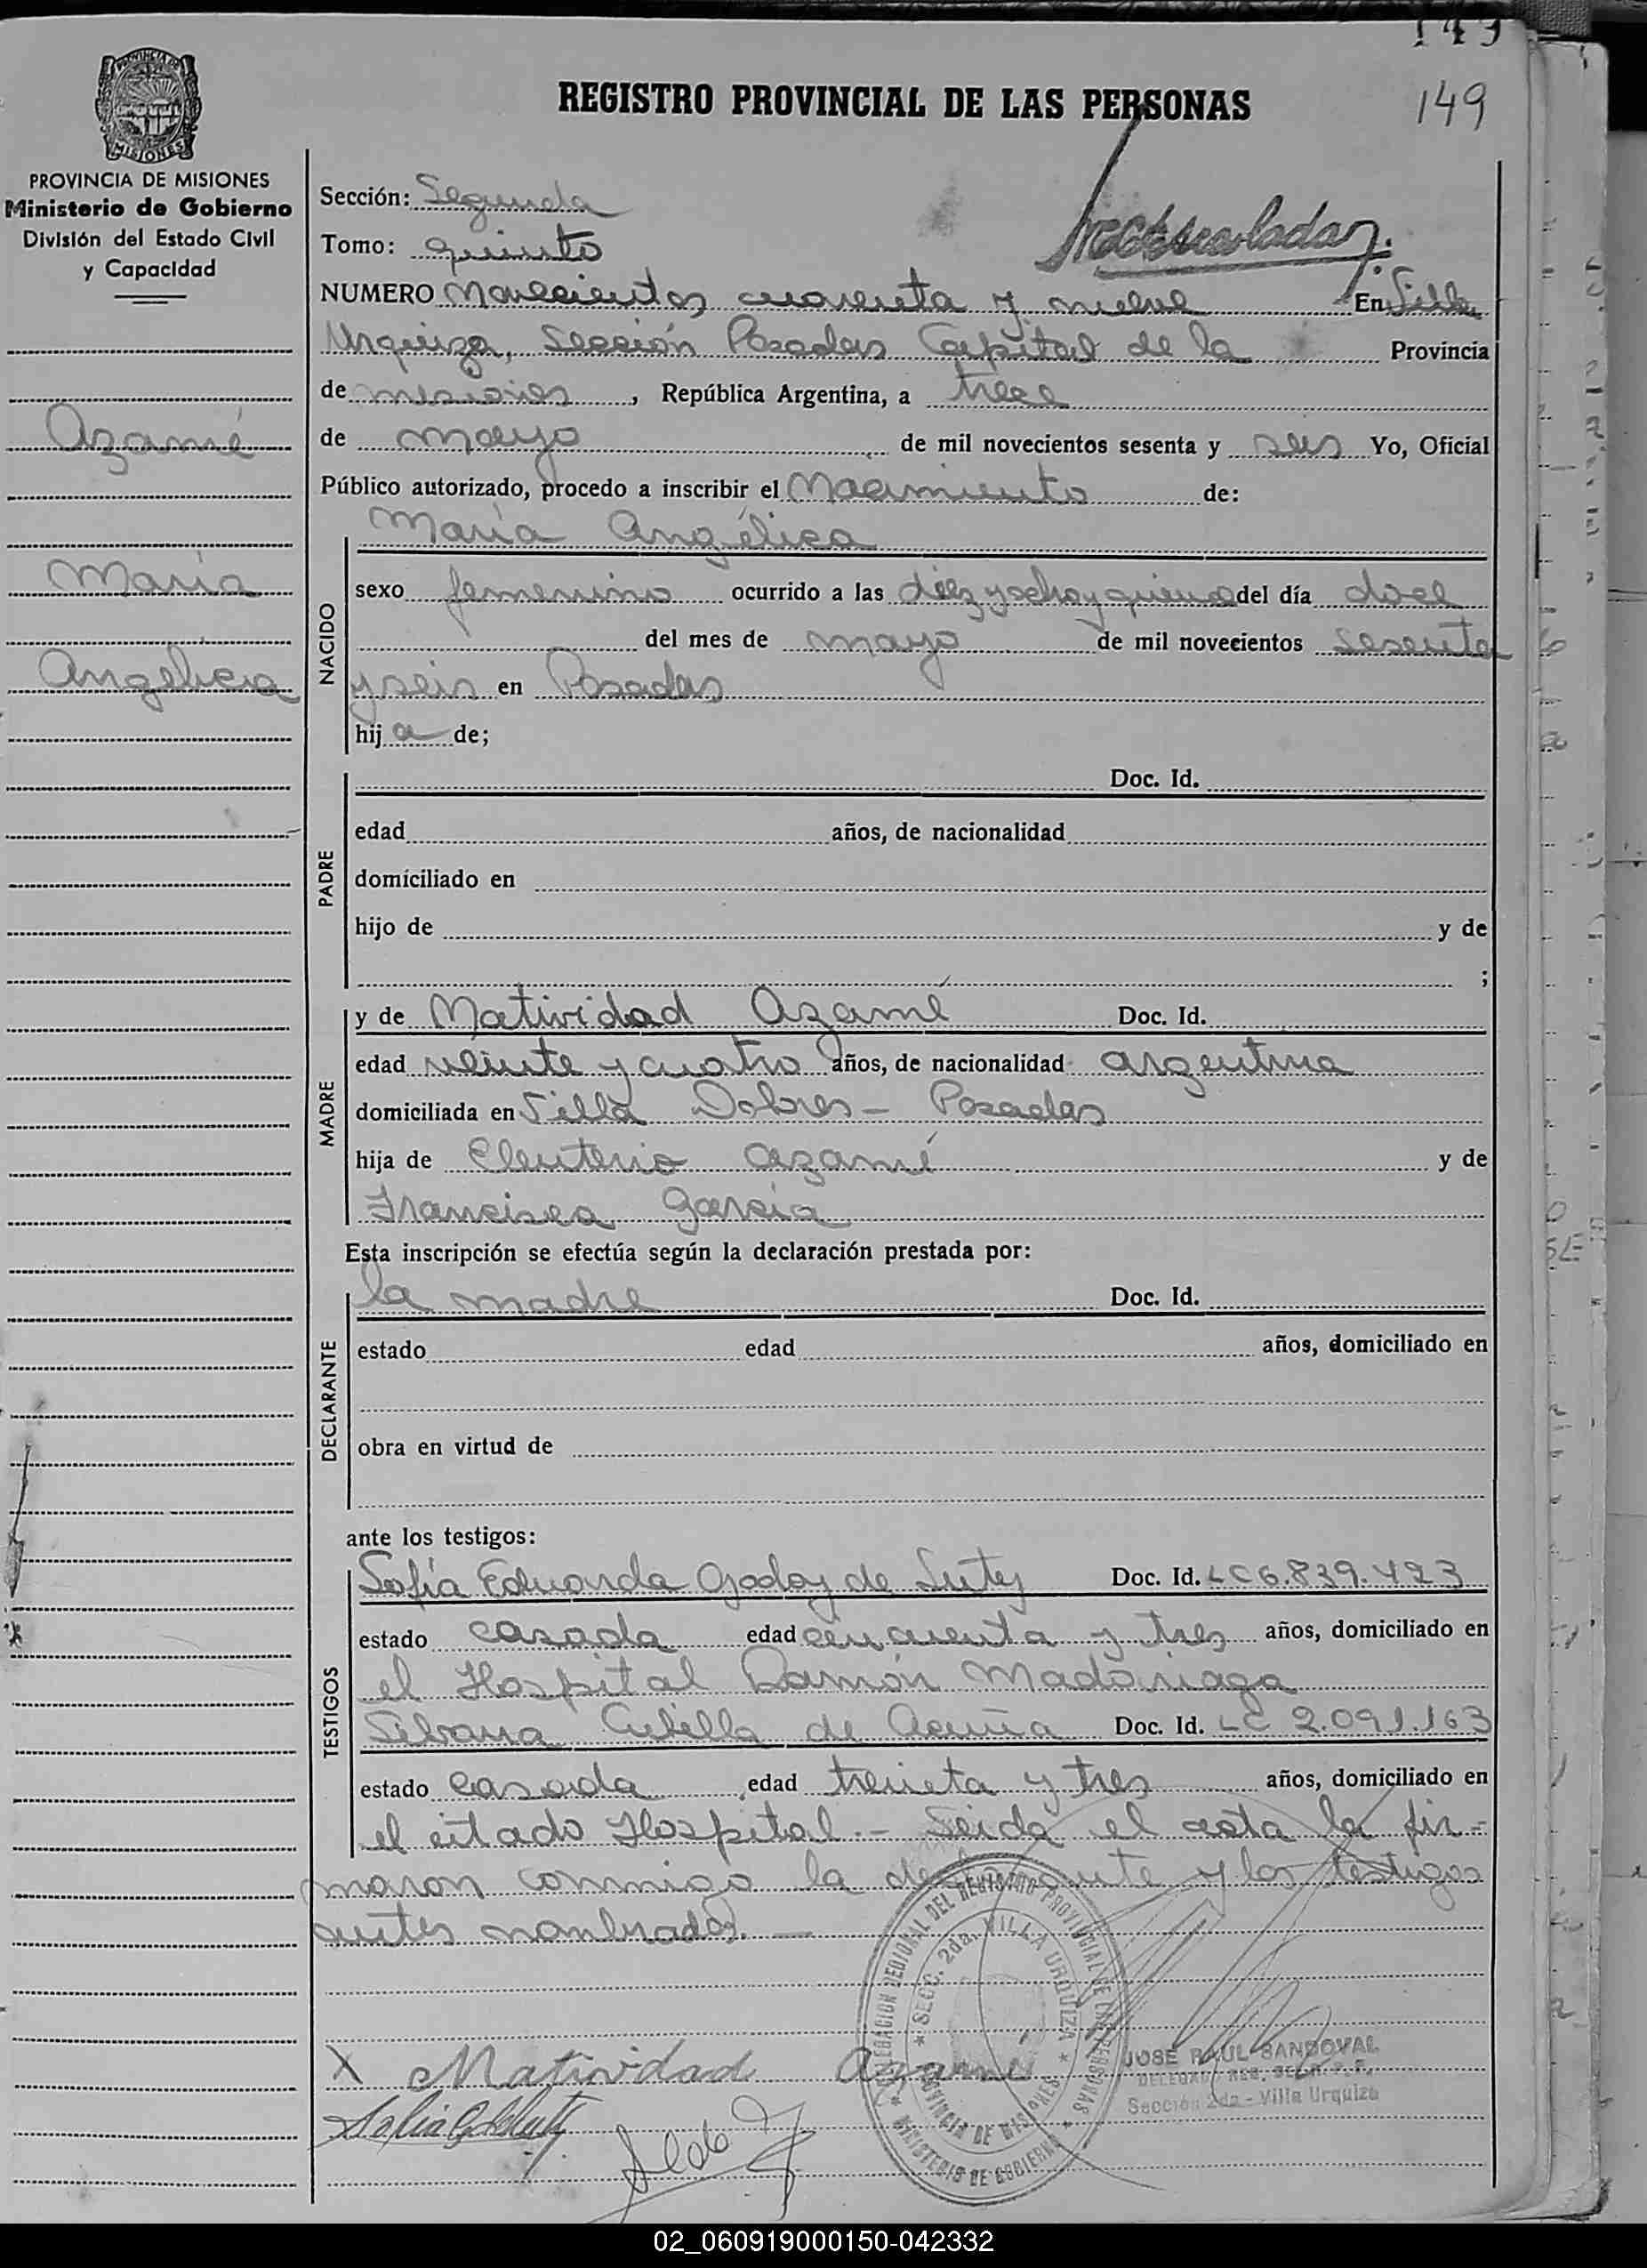 149
149
REGISTRO PROVINCIAL DE LAS PERSONAS
PROVINCIA DE MISIONES
Ministerio de Gobierno
División del Estado Civil
y Capacidad
Azamé
María
Angelica
Sección: Segunda
Tomo: quinto
NUMERO Novecientos cuarenta y nueve En Villa
Urquiza, Sección Posadas Capital de la Provincia
de misiones, República Argentina, a trece
de mayo de mil novecientos sesenta y seis Yo, Oficial
Público autorizado, procedo a inscribir el Nacimiento de:
NACIDO
María Angélica
sexo femenino ocurrido a las diez y ocho y quince del día doce
del mes de mayo de mil novecientos sesenta
y seis en Posadas
hija de;
PADRE
Doc. Id.
edad años, de nacionalidad
domiciliado en
hijo de y de
;
MADRE
y de Natividad Azamé Doc. Id.
edad veinte y cuatro años, de nacionalidad argentina
domiciliada en Villa Dolores - Posadas
hija de Eleuterio Azamé y de
Francisca García
Esta inscripción se efectúa según la declaración prestada por:
DECLARANTE
la madre Doc. Id.
estado edad años, domiciliado en
obra en virtud de
ante los testigos:
TESTIGOS
Sofía Eduarda Godoy de Doc. Id. LC 6.839.423
estado casada edad cincuenta y tres años, domiciliado en
el Hospital Ramón Madariaga
Silvana Cubilla de Acuña Doc. Id. LC 2.091.163
estado casada edad treinta y tres años, domiciliado en
el citado Hospital.- Leida el acta la fir-
maron conmigo la declarante y los testigos
antes nombrados. —
X Natividad Azamé
DELEGACION REGIONAL DEL REGISTRO PROVINCIAL DE LAS PERSONAS
SECC. 2da. VILLA URQUIZA
PROVINCIA DE MISIONES
MINISTERIO DE GOBIERNO
JOSE RAUL SANDOVAL
Sección 2da - Villa Urquiza
02_060919000150-042332